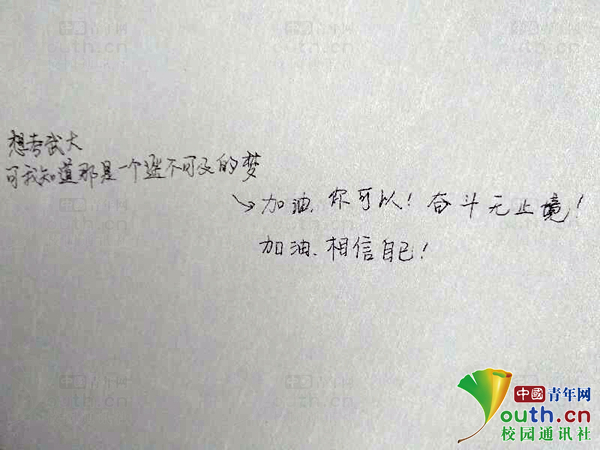 想考武大
可我知道那是一个遥不可及的梦
加油.你可以!奋斗无止境!
加油.相信自己!
中國青年网
youth.cn
校园通讯社